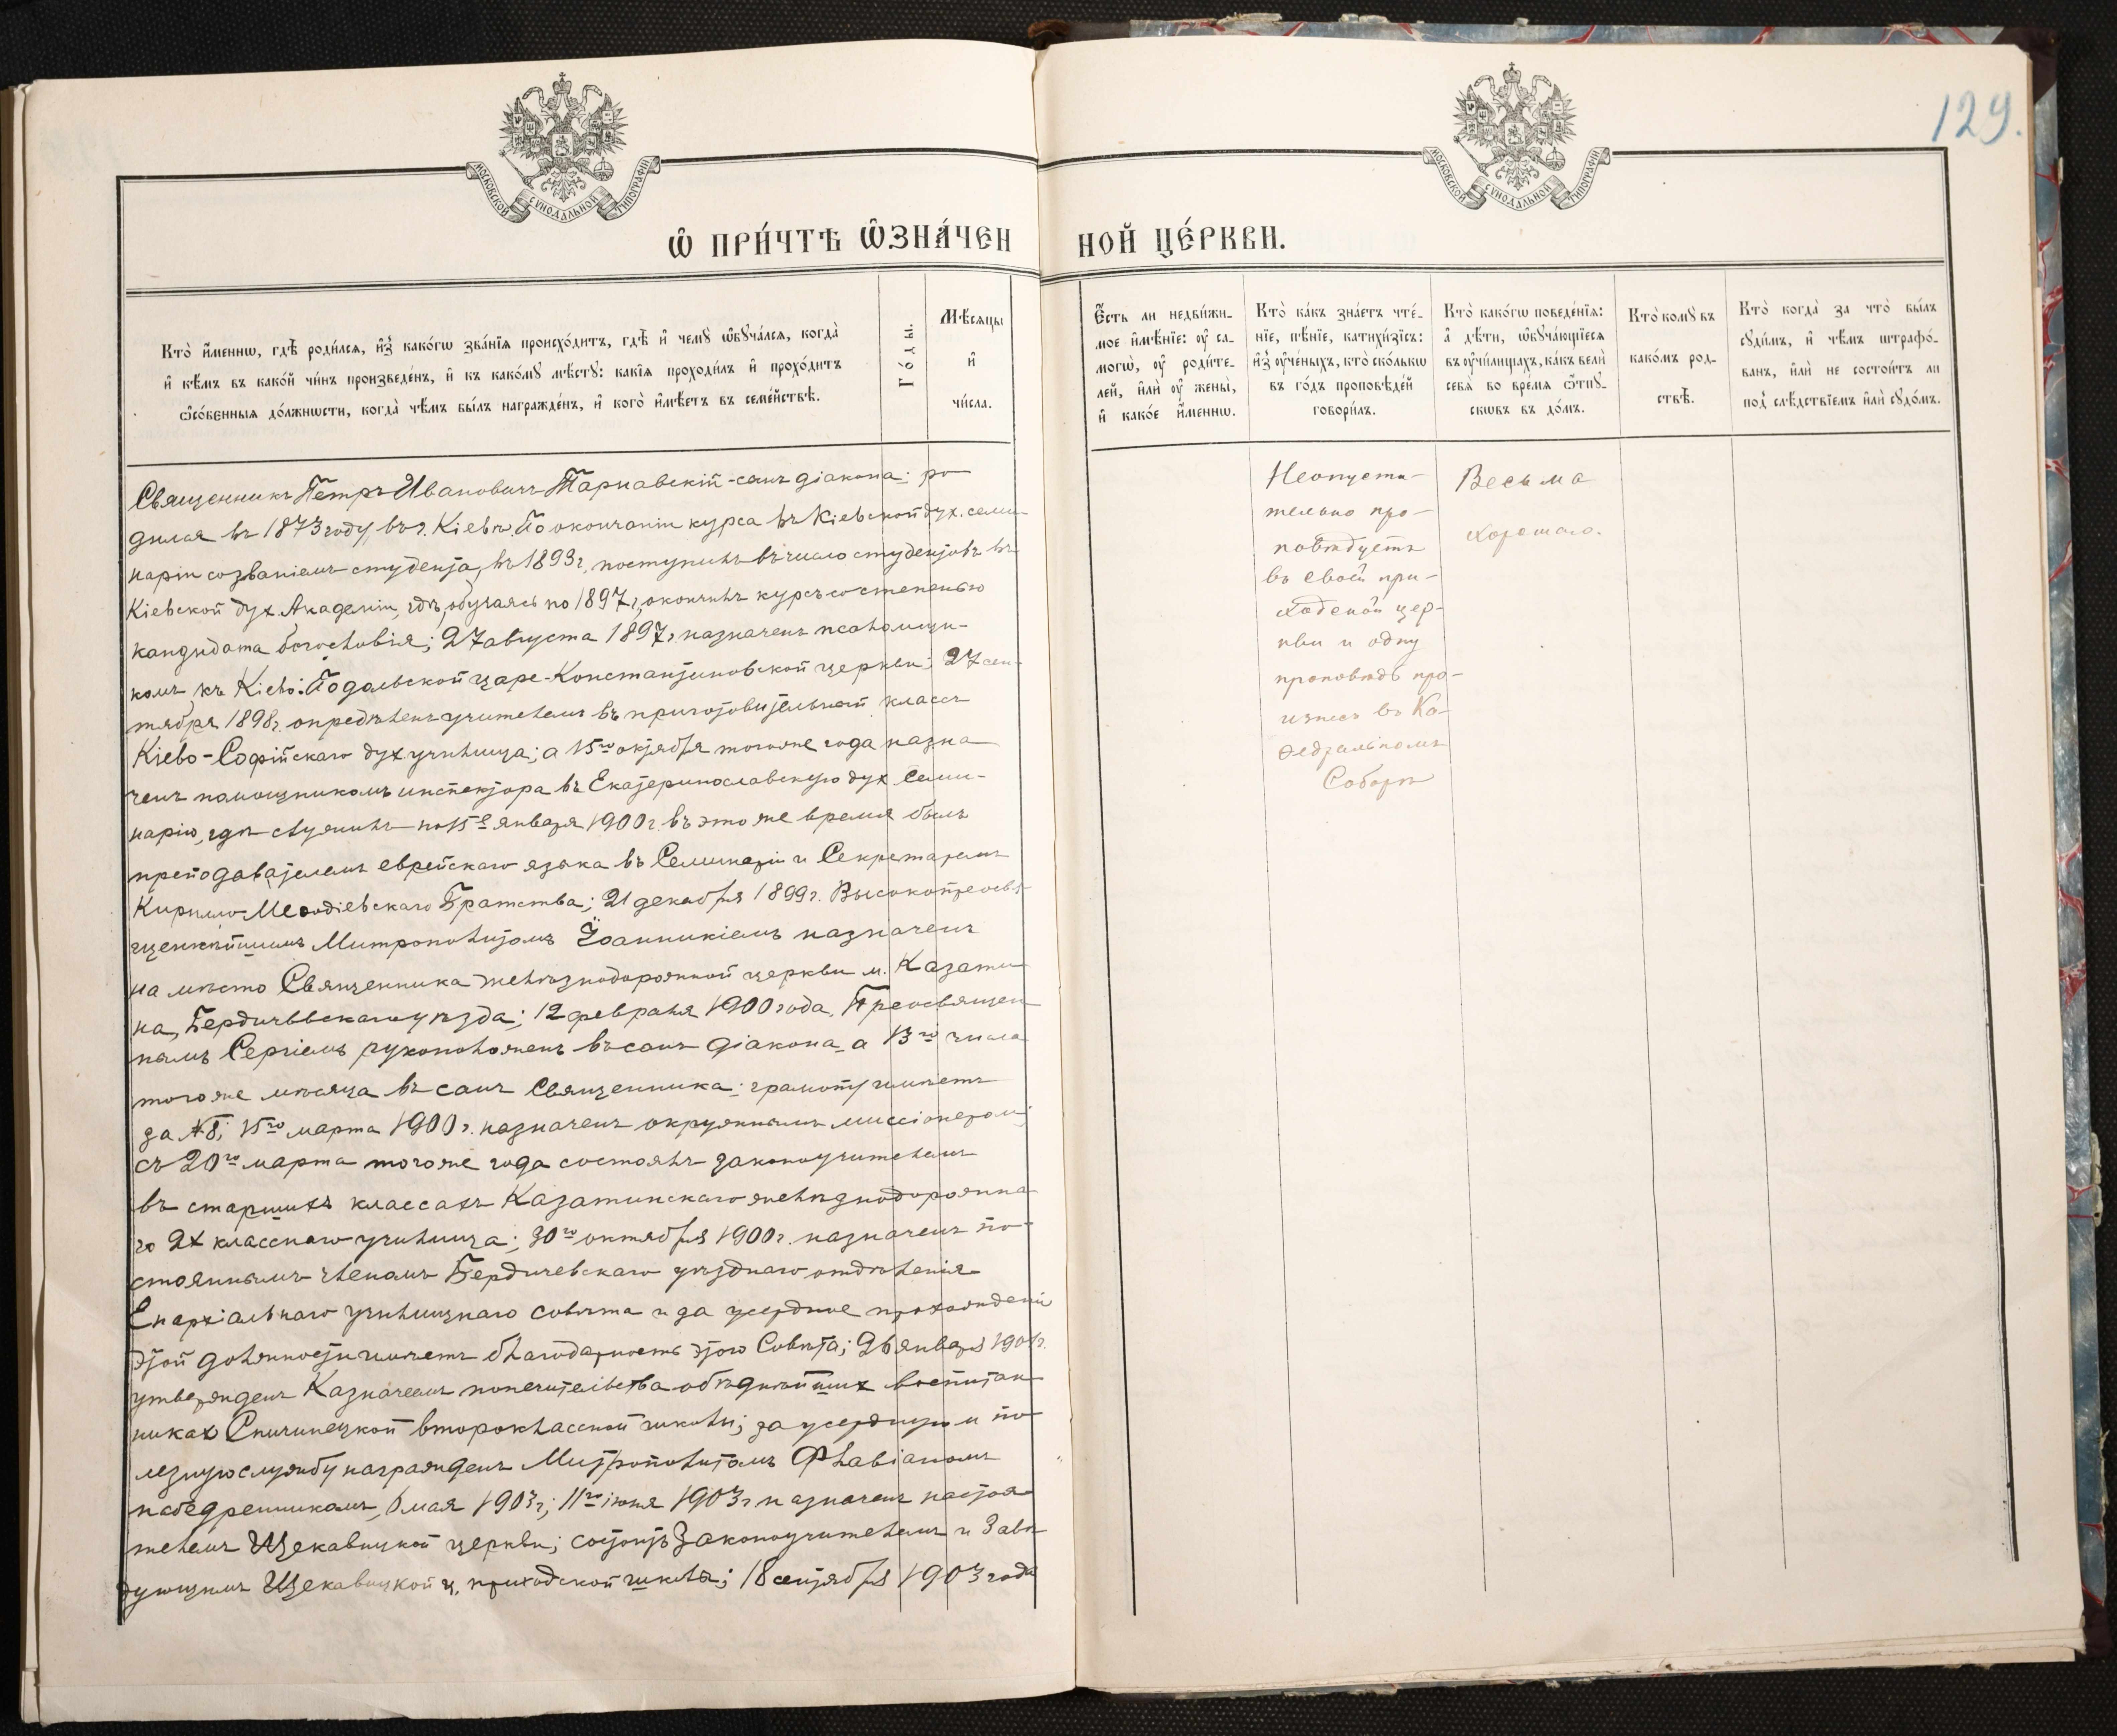 129.
МОСКОВСКОЙ СѴНОДАЛЬНОЙ ТИПОГРАФІИ
МОСКОВСКОЙ СѴНОДАЛЬНОЙ ТИПОГРАФІИ
Ѡ҆ ПРИ́ЧТѢ Ѡ҆ЗНА́ЧЕН НОЙ ЦЕ́РКВИ.
Кто̀ и҆́меннѡ, гдѣ̀ роди́лсѧ, и҆з̾ како́гѡ зва́нїѧ происхо́дитъ, гдѣ̀ и҆ чемꙋ̀ ѡ҆бꙋча́лсѧ, когда̀
и҆ кѣ́мъ въ како́й чи́нъ произведе́нъ, и҆ къ како́мꙋ мѣ́стꙋ: какі́ѧ проходи́лъ и҆ прохо́дитъ
ѻ҆со́бенныѧ до́лжнѡсти, когда̀ чѣ́мъ бы́лъ награжде́нъ, и҆ кого̀ и҆мѣ́етъ въ семе́йствѣ.
Го́ды.
Мѣ́сѧцы
и҆
чи́сла.
Є҆́сть ли недви́жи-
мое и҆мѣ́нїе: ᲂу҆ са-
могѡ̀, ᲂу҆ роди́те-
лей, и҆лѝ ᲂу҆ жены̀,
и҆ како́е и҆́меннѡ.
Кто̀ ка́къ зна́етъ чте́-
нїе, пѣ́нїе, катихи́зїсъ:
и҆з̾ ᲂу҆че́ныхъ, кто̀ ско́лькѡ
въ го́дъ проповѣ́дей
говори́лъ.
Кто̀ како́гѡ поведе́нїѧ:
а҆ дѣ́ти, ѡ҆бꙋча́ющїесѧ
въ ᲂу҆чи́лищахъ, ка́къ велѝ
себѧ̀ во вре́мѧ ѿпꙋ-
скѡвъ въ до́мъ.
Кто̀ комꙋ̀ въ
како́мъ род-
ствѣ̀.
Кто̀ когда̀ за что̀ бы́лъ
сꙋди́мъ, и҆ чѣ́мъ штрафо́-
ванъ, и҆лѝ не состои́тъ ли
под̾ слѣ́дствїемъ и҆лѝ сꙋдо́мъ.
Священникъ Петръ Ивановичъ Тарнавскій - сынъ діакона; ро
дился въ 1873 году, въ г. Кіевѣ. По окончаніи курса въ Кіевской дух. семи-
наріи со званіемъ студента, въ 1893 г, поступилъ въ число студентовъ въ
Кіевской дух. Академіи, гдѣ, обучаясь по 1897 г, окончилъ курсъ со степенью
кандидата богословія; 27 августа 1897 г назначенъ псаломщи-
комъ къ Кіево-Подольской Царе-Константиновской церкви; 27 сен-
тября 1898 г. опредѣленъ учителемъ въ приготовительный классъ
Кіево-Софійскаго дух. училища; а 15го октября того же года назна
ченъ помощникомъ инспектора въ Екатеринославскую дух. Семи-
нарію, гдѣ служилъ по 15е января 1900 г. въ это же время былъ
преподавателемъ еврейскаго языка въ Семинаріи и Секретаремъ
Кирилло-Меѳодіевскаго Братства; 21 декабря 1899 г. Высокопреосвя-
щеннѣйшимъ Митрополитомъ Іоанникіемъ назначенъ
на мѣсто Священника желѣзнодорожной церкви м. Казати-
на, Бердичевскаго уѣзда; 12 февраля 1900 года, Преосвящен
нымъ Сергіемъ рукоположенъ въ санъ діакона, а 13го числа
того же мѣсяца въ санъ Священника; грамоту имѣетъ
за № 8; 15го марта 1900 г. назначенъ окружнымъ миссіонеромъ;
съ 20го марта того же года состоялъ законоучителемъ
въ старшихъ классахъ Казатинскаго желѣзнодорожна
го 2х класснаго училища; 30го октября 1900 г. назначенъ по-
стояннымъ членомъ Бердичевскаго уѣзднаго отдѣленія
Епархіальнаго училищнаго совѣта и за усердное прохожденіе
этой должности имѣетъ благодарность этого Совѣта; 26 января 1901 г.
утвержденъ Казначеемъ попечительства о бѣднѣйшихъ воспитан
никах Спичинецкой второклассной школы; за усердную и по-
лезную службу награжденъ Митрополитомъ Флавіаномъ
набедренникомъ, 6 мая 1903 г; 11го іюня 1903 г назначенъ настоя-
телемъ Щекавицкой церкви; состоитъ Законоучителемъ и Завѣ
дующимъ Щекавицкой ц. приходской школы; 18 сентября 1903 года
Неопусти-
тельно про-
повѣдуетъ
въ своей при-
ходской цер-
кви и одну
проповѣдь про-
изнесъ въ Ка-
ѳедральномъ
Соборѣ
Весьма
хорошаго.